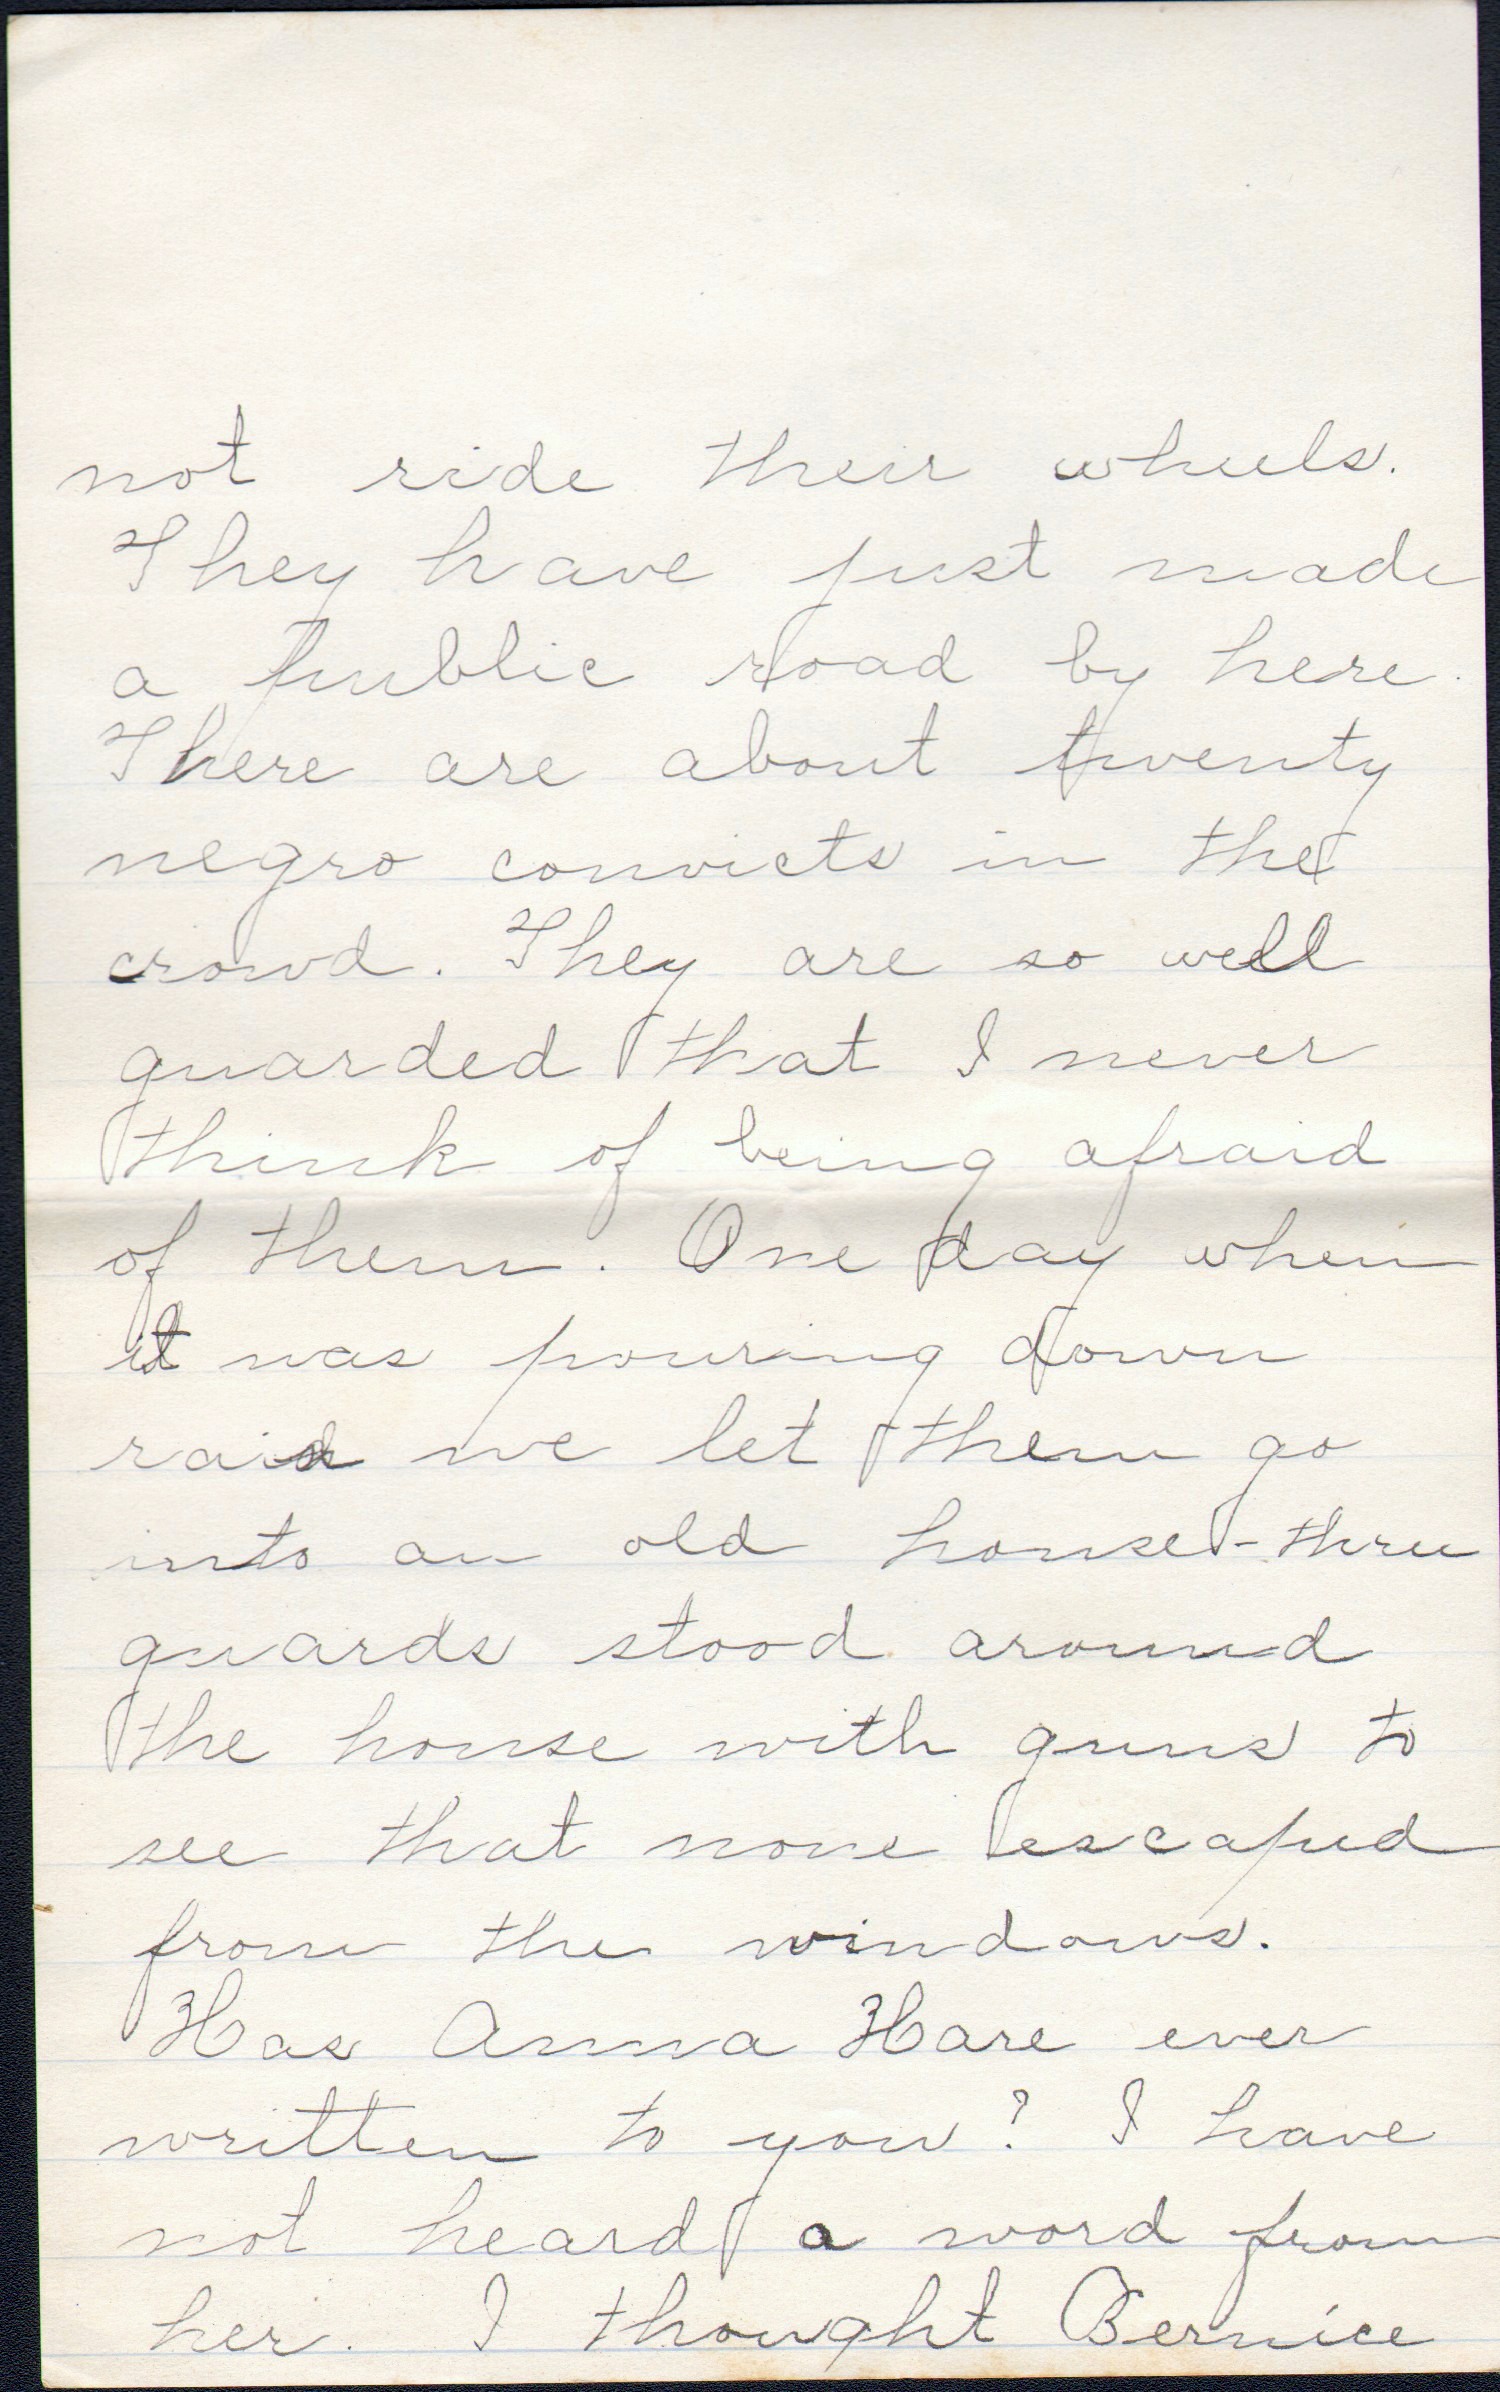 not ride their wheels.
They have just made
a public road by here.
There are about twenty
negro convicts in the
crowd. They are so well
guarded that I never
think of being afraid
of them. One day when
it was pouring down
rain we let them go
into an old house - three
guards stood around
the house with guns to
see that none escaped
from the windows.
Has Anna Hare ever
written to you? I have
not heard a word from
her. I thought Bernice